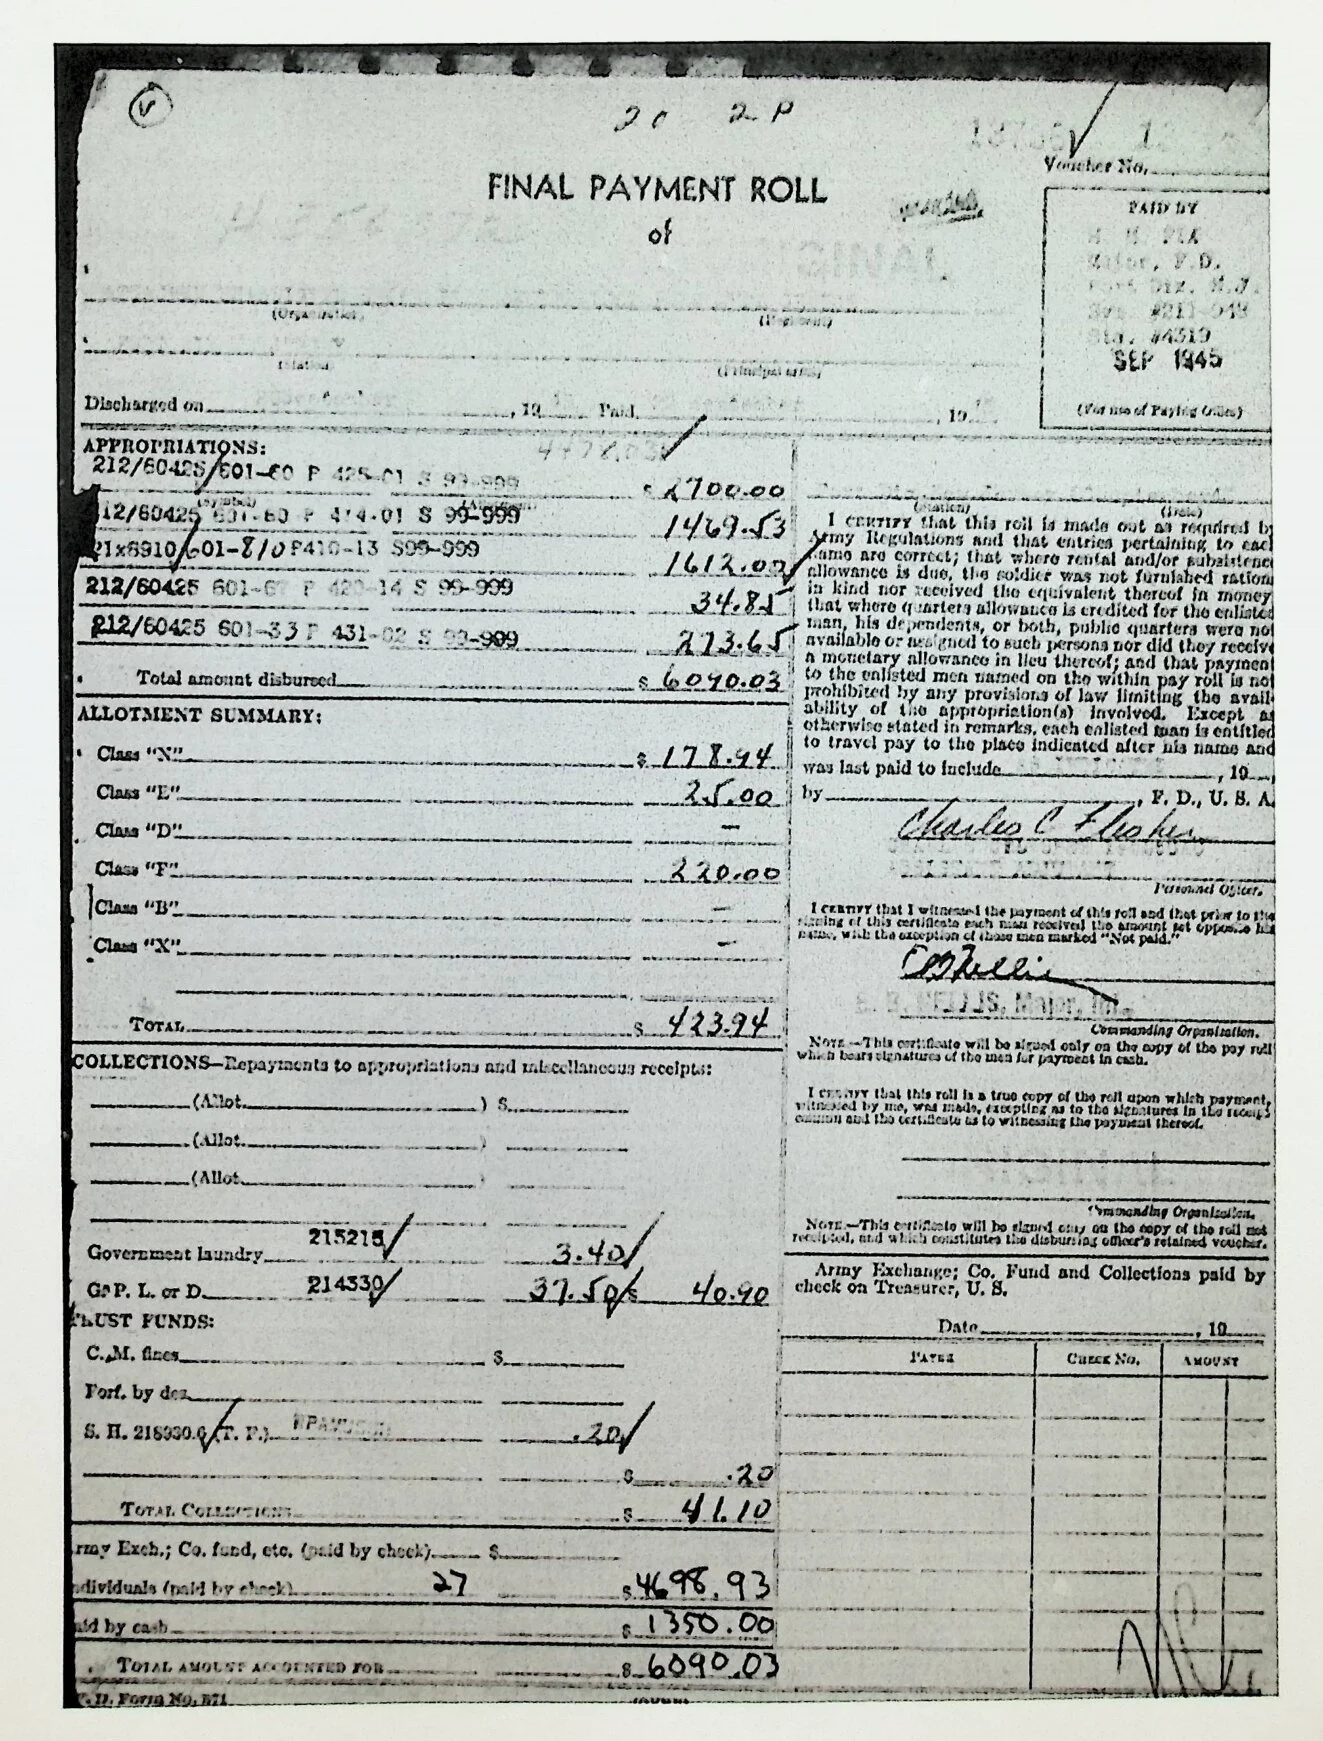 V
20 2P
Voucher No.
FINAL PAYMENT ROLL
of
PAID BY
Major, F.D.
SEP 1945
(For use of Paying Office)
(Organization)
(Station)
(Principal arm)
Discharged on , 19 Paid , 19
APPROPRIATIONS:
212/60425 601-60 P 425-01 S 99-999 $ 2700.00
(Symbol)
12/60425 601-60 P 414-01 S 99-999 1469.53
21x6910 601-810 P410-13 S99-999 1612.00
212/60425 601-6 P 420-14 S 99-999 34.85
212/60425 601-33 P 431-02 S 99-909 273.65
Total amount disbursed $ 6090.03
ALLOTMENT SUMMARY:
Class "N" $ 178.94
Class "E" 25.00
Class "D" –
Class "F" 220.00
Class "B" –
Class "X" –
TOTAL $ 423.94
COLLECTIONS—Repayments to appropriations and miscellaneous receipts:
(Allot. ) $
(Allot. )
(Allot. )
Government laundry 215215 3.40
G P. L. or D. 214330 37.50 $ 40.90
TRUST FUNDS:
C. M. fines $
Forf. by des.
S. H. 218930.6 (T. F.) .20
$ .20
TOTAL COLLECTIONS $ 41.10
rmy Exch.; Co. fund, etc. (paid by check) $
dividuals (paid by check) 27 $ 4698.93
aid by cash $ 1350.00
TOTAL AMOUNT ACCOUNTED FOR $ 6090.03
Form No.
(Station) (Date)
I CERTIFY that this roll is made out as required by
Army Regulations and that entries pertaining to each
name are correct; that where rental and/or subsistence
allowance is due, the soldier was not furnished rations
in kind nor received the equivalent thereof in money
that where quarters allowance is credited for the enlisted
man, his dependents, or both, public quarters were not
available or assigned to such persons nor did they receive
a monetary allowance in lieu thereof; and that payment
to the enlisted men named on the within pay roll is not
prohibited by any provisions of law limiting the avail-
ability of the appropriation(s) involved. Except as
otherwise stated in remarks, each enlisted man is entitled
to travel pay to the place indicated after his name and
was last paid to include , 19 ,
by , F. D., U. S. A.
Charles C
Personnel Officer.
I CERTIFY that I witnessed the payment of this roll and that prior to the
signing of this certificate each man received the amount set opposite his
name, with the exception of those men marked "Not paid."
Major, Inf.
Commanding Organization.
NOTE.—This certificate will be signed only on the copy of the pay roll
which bears signatures of the men for payment in cash.
I CERTIFY that this roll is a true copy of the roll upon which payment,
witnessed by me, was made, excepting as to the signatures in the receipt
column and the certificate as to witnessing the payment thereof.
Commanding Organization.
NOTE.—This certificate will be signed only on the copy of the roll not
receipted, and which constitutes the disbursing officer's retained voucher.
Army Exchange; Co. Fund and Collections paid by
check on Treasurer, U. S.
Date , 19
PAYEE CHECK NO. AMOUNT